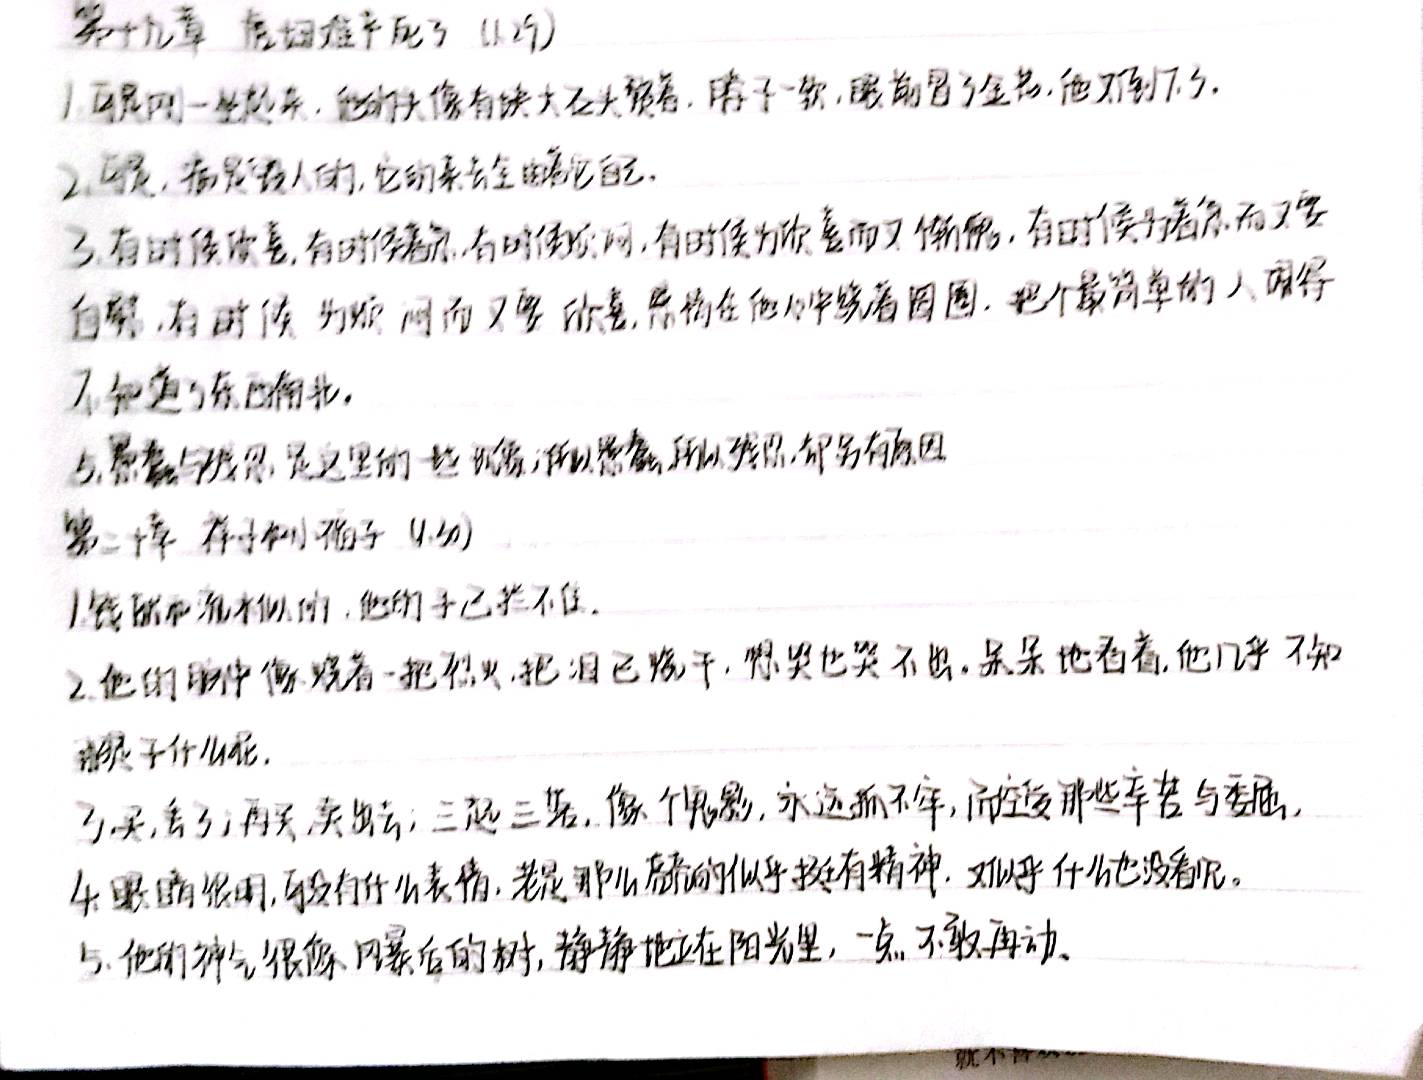 第十九章 虎妞难产死了 (1.29)
1.可是刚一坐起来，他的头像有块大石头赘着，脖子一软，眼前冒了金花，他又倒下了。
2.可是，病是毁人的，它的来去全由着它自己。
3.有时候欣喜，有时候着急，有时候烦闷，有时候为欣喜而又惭愧，有时候为着急而又要
自慰，有时候为烦闷而又要欣喜，感情在他心中绕着圆圈，把个最简单的人闹得
不知道了东西南北。
5.愚蠢与残忍是这里的一些现象；所以愚蠢，所以残忍，却另有原因
第二十章 祥子和小福子 (1.30)
1.钱就和流水似的，他的手已拦不住。
2.他的眼中像烧着一把烈火，把泪已烧干，想哭也哭不出。呆呆地看着，他几乎不知
那是干什么呢。
3.买，丢了；再买，卖出去；三起三落，像个鬼影，永远抓不牢，而空受那些辛苦与委屈，
4.眼睛很明，可没有什么表情，老是那么亮亮的似乎挺有精神，又似乎什么也没看见。
5.他的神气很像风暴后的树，静静地立在阳光里，一点不敢再动、